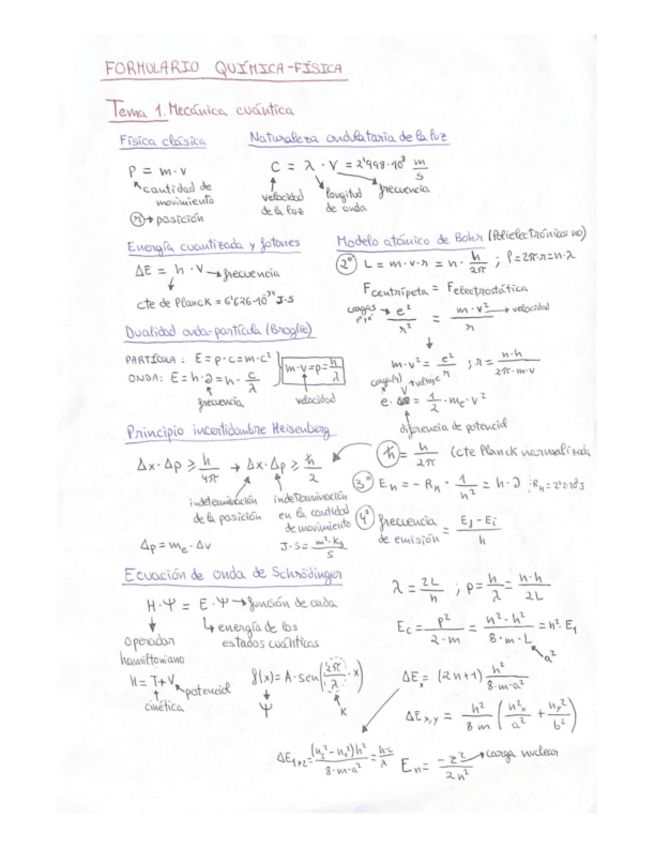 FORMULARIO QUÍMICA-FÍSICA
Tema 1. Mecánica cuántica
Física clásica
P = m·v
cantidad de movimiento
r → posición
Naturaleza ondulatoria de la luz
C = λ · ν = 2'998·10⁸ m/s
velocidad de la luz
longitud de onda
frecuencia
Energía cuantizada y fotones
ΔE = h · ν → frecuencia
cte de Planck = 6'626·10⁻³⁴ J·s
Modelo atómico de Bohr (Polielectrónicos no)
2º L = m·v·r = n · h/2π ; l = 2π·r = n·λ
Fcentrípeta = Felectrostática
cargas
e²/r² = m·v²/r → velocidad
m·v² = e²/r ; r = n·h/2π·m·v
= 1/2 · me · v²
diferencia de potencial
Dualidad onda-partícula (Broglie)
PARTÍCULA : E = p·c = m·c²
ONDA: E = h·ν = h · c/λ
m·v = p = h/λ
frecuencia
velocidad
Principio incertidumbre Heisenberg
Δx · Δp ≥ h/4π → Δx · Δp ≥ ħ/2
indeterminación de la posición
indeterminación en la cantidad de movimiento
Δp = me · Δv
J·s = m²·Kg/s
ħ = h/2π (cte Planck normalizada
3º En = − RH · 1/n² = h·ν
4º frecuencia de emisión = Ef − Ei / h
Ecuación de onda de Schrödinger
H·Ψ = E·Ψ → función de onda
energía de los estados cuánticos
operador hamiltoniano
H = T + V
potencial
cinética
f(x) = A·sen(2π/λ · x)
Ψ
K
λ = 2L/n ; p = h/λ = n·h/2L
Ec = p²/2·m = n²·h²/8·m·L = n²·E₁
a²
ΔEx = (2n+1) h²/8·m·a²
ΔEx,y = h²/8m (nx²/a² + ny²/b²)
ΔE₁→₂ = (n₂² − n₁²)h²/8·m·a² = hc/λ
En = −z²/2n² → carga nuclear